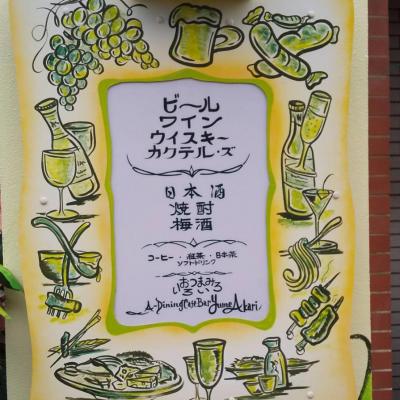 ビール
ワイン
ウイスキー
カクテル・ズ
日本酒
焼酎
梅酒
コーヒー・紅茶・日本茶
ソフトドリンク
おつまみ
いろいろ
A-Dining Cafe Bar Yume Akari